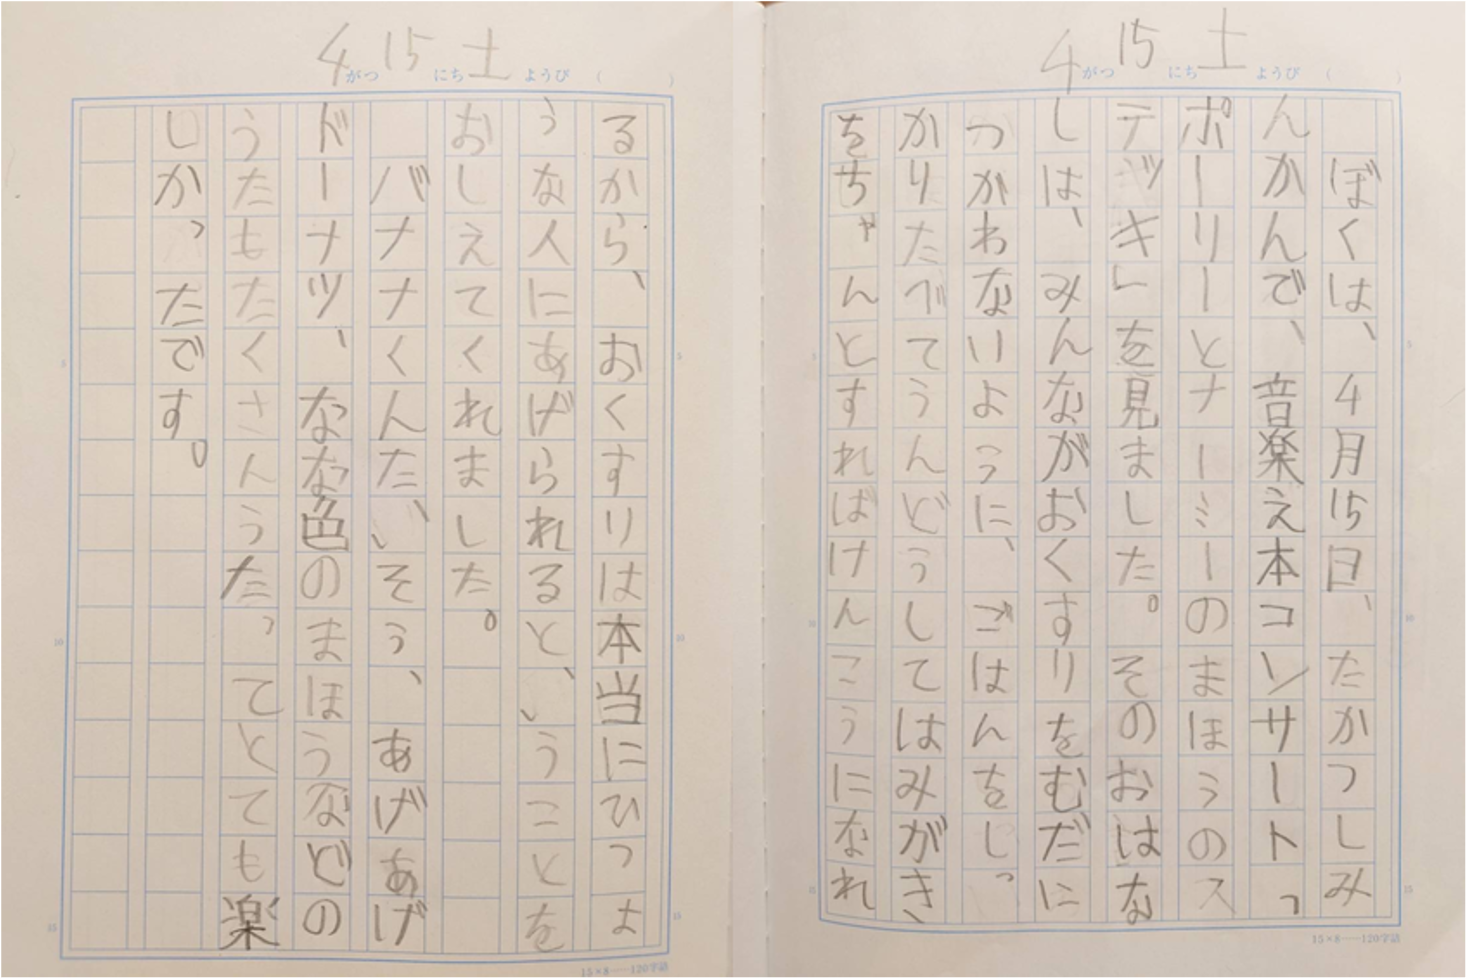 4がつ15にち土ようび（　）
ぼくは、4月15日、たかつしみ
んかんで、音楽え本コンサート「
ポーリーとナーミーのまほうのス
テッキ」を見ました。そのおはな
しは、みんながおくすりをむだに
つかわないように、ごはんをしっ
かりたべてうんどうしてはみがき
をちゃんとすればけんこうになれ
15×8―120字詰
4がつ15にち土ようび（　）
るから、おくすりは本当にひつよ
うな人にあげられるということを
おしえてくれました。
バナナくんたいそう、あげあげ
ドーナツ、なな色のまほうなどの
うたもたくさんうたってとても楽
しかったです。
15×8―120字詰